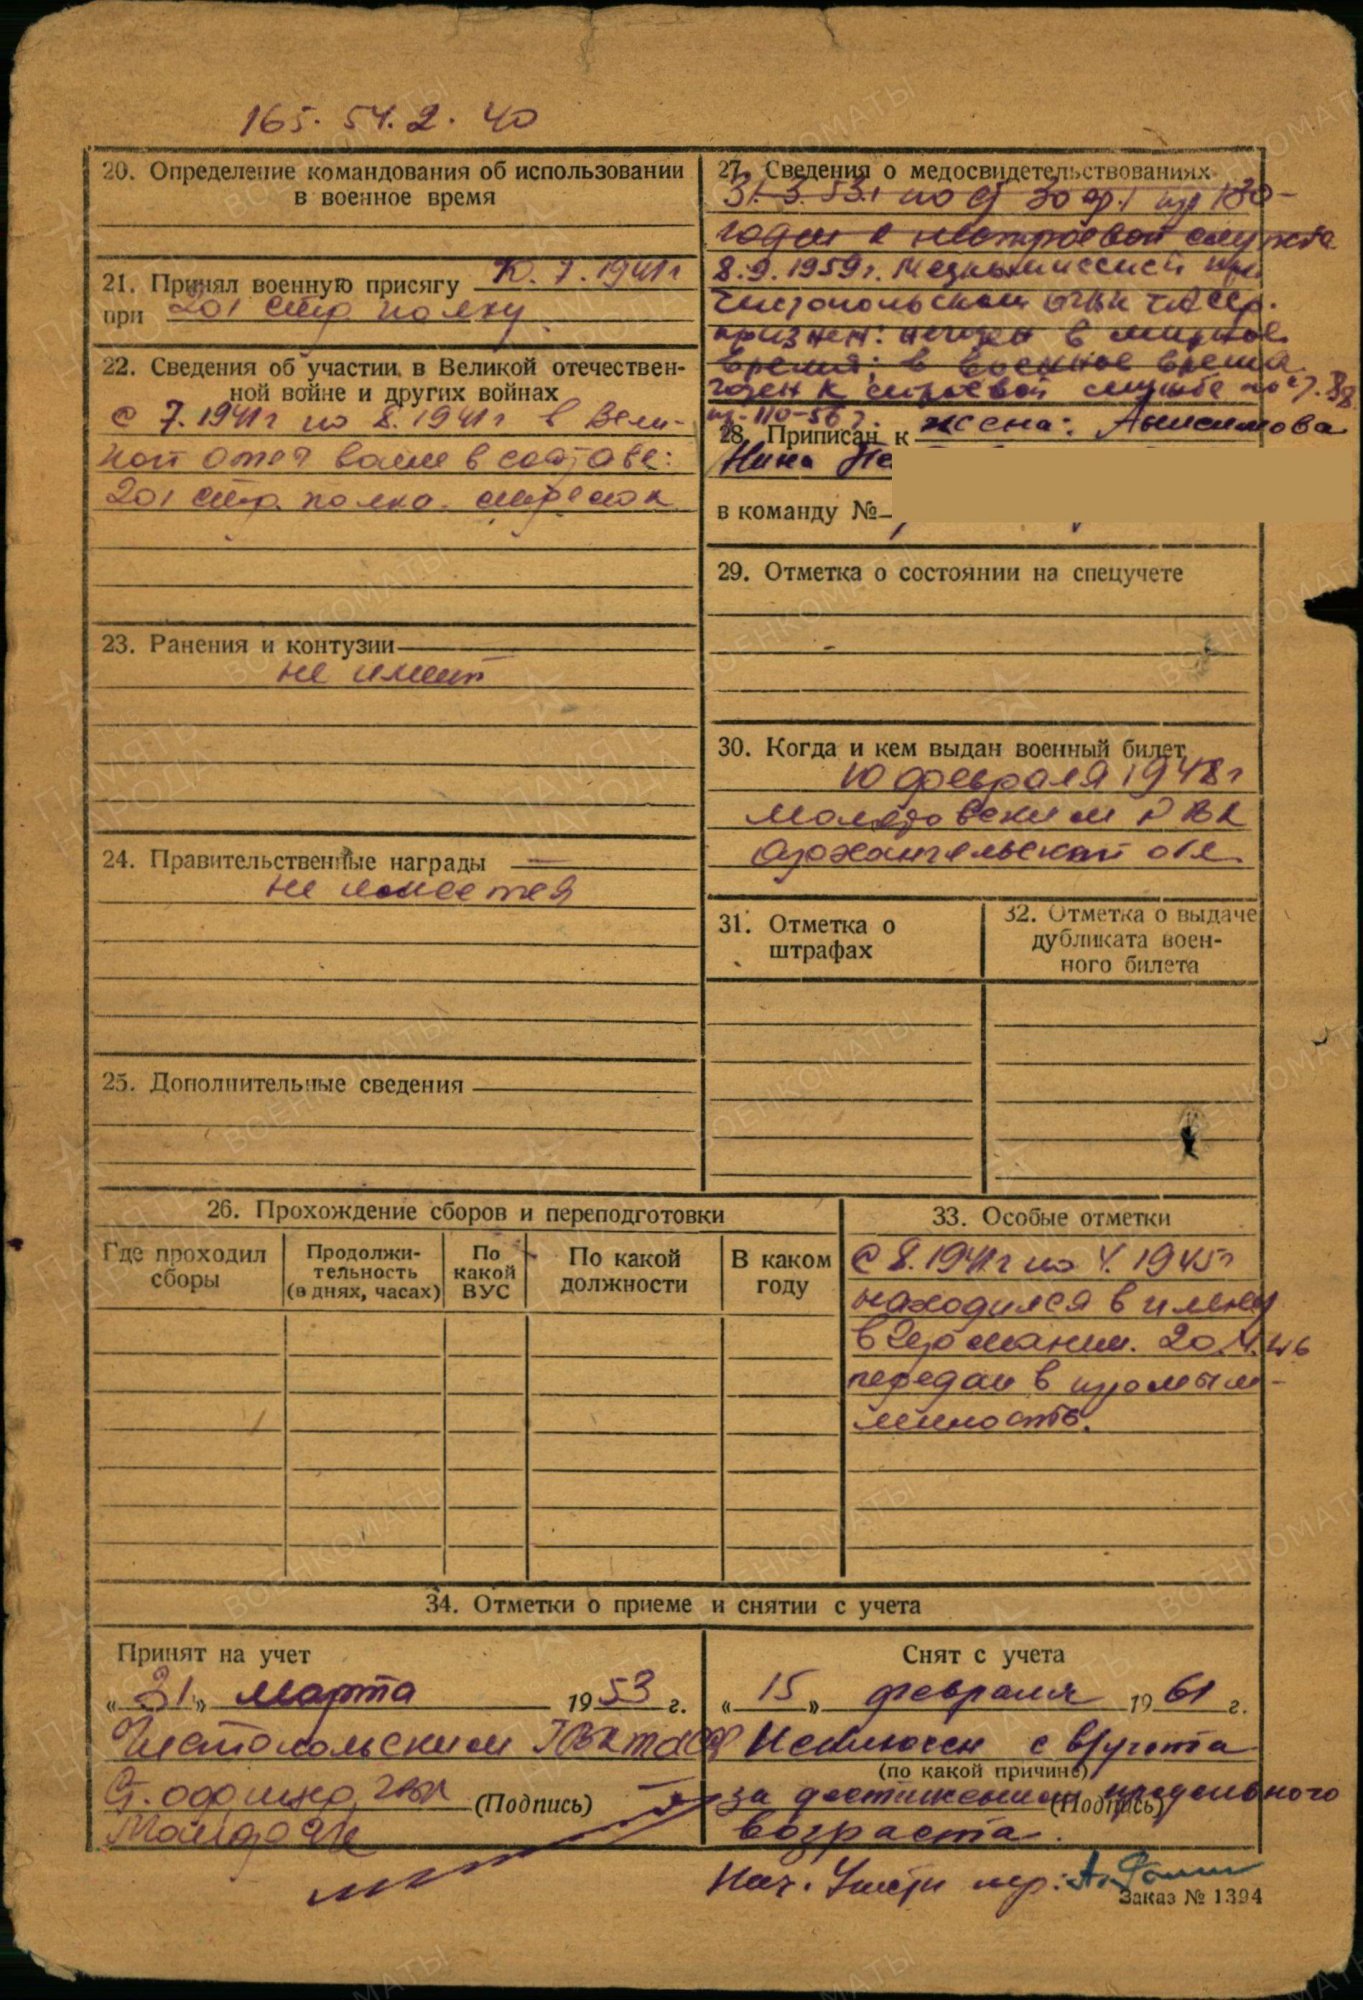 165. 54. 2. 40
20. Определение командования об использовании
в военное время
21. Принял военную присягу 10. 7. 1941 г
при 201 стр. полку
22. Сведения об участии в Великой отечествен-
ной войне и других войнах
с 7. 1941 г по 8. 1941 г в Вели-
кой отеч войне в составе:
201 стр. полка. стрелок
23. Ранения и контузии
не имеет
24. Правительственные награды
не имеется
25. Дополнительные сведения
27. Сведения о медосвидетельствованиях
31. 3. 53 г по ст 30 гр. 1 пр 130
годен к нестроевой службе
8. 9. 1959 г. Медкомиссией при
Чистопольском ТАССР.
признен: негоден в мирное
время; в военное время
годен к строевой службе по ст. 88
пр. 110-56 г.
28. Приписан к жена: Анисимова
Нина Пе
в команду №
29. Отметка о состоянии на спецучете
30. Когда и кем выдан военный билет
10 февраля 1948 г
Молотовским РВК
Архангельской обл.
31. Отметка о
штрафах
32. Отметка о выдаче
дубликата воен-
ного билета
26. Прохождение сборов и переподготовки
Где проходил
сборы
Продолжи-
тельность
(в днях, часах)
По
какой
ВУС
По какой
должности
В каком
году
33. Особые отметки
С 8. 1941 г по 4. 1945 г
находился в плену
в Германии. 20. 4. 46
передан в промыш-
ленность.
34. Отметки о приеме и снятии с учета
Принят на учет
« 31 » марта 1953 г.
Чистопольским ГВК ТАССР
Ст. офицер ГВК
(Подпись)
Снят с учета
« 15 » февраля 1961 г.
Исключен с в/учета
(по какой причине)
за достижением предельного
(Подпись)
возраста.
Нач.
Заказ № 1394
ПАМЯТЬ
НАРОДА
ВОЕНКОМАТЫ